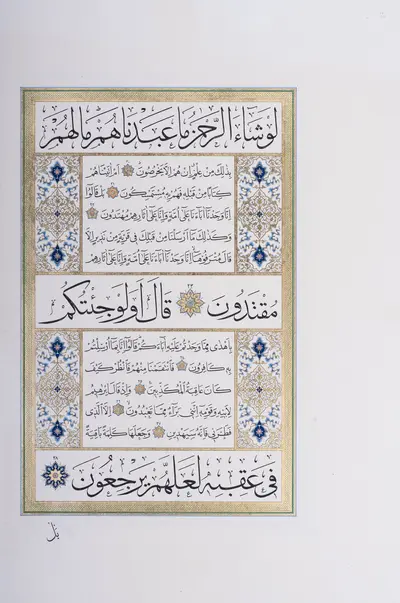 لَوْ شَاءَ الرَّحْمٰنُ مَا عَبَدْنَاهُمْ مَا لَهُمْ
بِذٰلِكَ مِنْ عِلْمٍ اِنْ هُمْ اِلَّا يَخْرُصُونَ اَمْ اٰتَيْنَاهُمْ
كِتَابًا مِنْ قَبْلِهِ فَهُمْ بِهِ مُسْتَمْسِكُونَ بَلْ قَالُوا
اِنَّا وَجَدْنَا اٰبَاءَنَا عَلٰى اُمَّةٍ وَاِنَّا عَلٰى اٰثَارِهِمْ مُهْتَدُونَ
وَكَذٰلِكَ مَا اَرْسَلْنَا مِنْ قَبْلِكَ فِي قَرْيَةٍ مِنْ نَذِيرٍ اِلَّا
قَالَ مُتْرَفُوهَا اِنَّا وَجَدْنَا اٰبَاءَنَا عَلٰى اُمَّةٍ وَاِنَّا عَلٰى اٰثَارِهِمْ
مُقْتَدُونَ قَالَ اَوَلَوْ جِئْتُكُمْ
بِاَهْدٰى مِمَّا وَجَدْتُمْ عَلَيْهِ اٰبَاءَكُمْ قَالُوا اِنَّا بِمَا اُرْسِلْتُمْ
بِهِ كَافِرُونَ فَانْتَقَمْنَا مِنْهُمْ فَانْظُرْ كَيْفَ
كَانَ عَاقِبَةُ الْمُكَذِّبِينَ وَاِذْ قَالَ اِبْرٰهِيمُ
لِاَبِيهِ وَقَوْمِهِ اِنَّنِي بَرَاءٌ مِمَّا تَعْبُدُونَ اِلَّا الَّذِي
فَطَرَنِي فَاِنَّهُ سَيَهْدِينِ وَجَعَلَهَا كَلِمَةً بَاقِيَةً
فِي عَقِبِهِ لَعَلَّهُمْ يَرْجِعُونَ
بَلْ